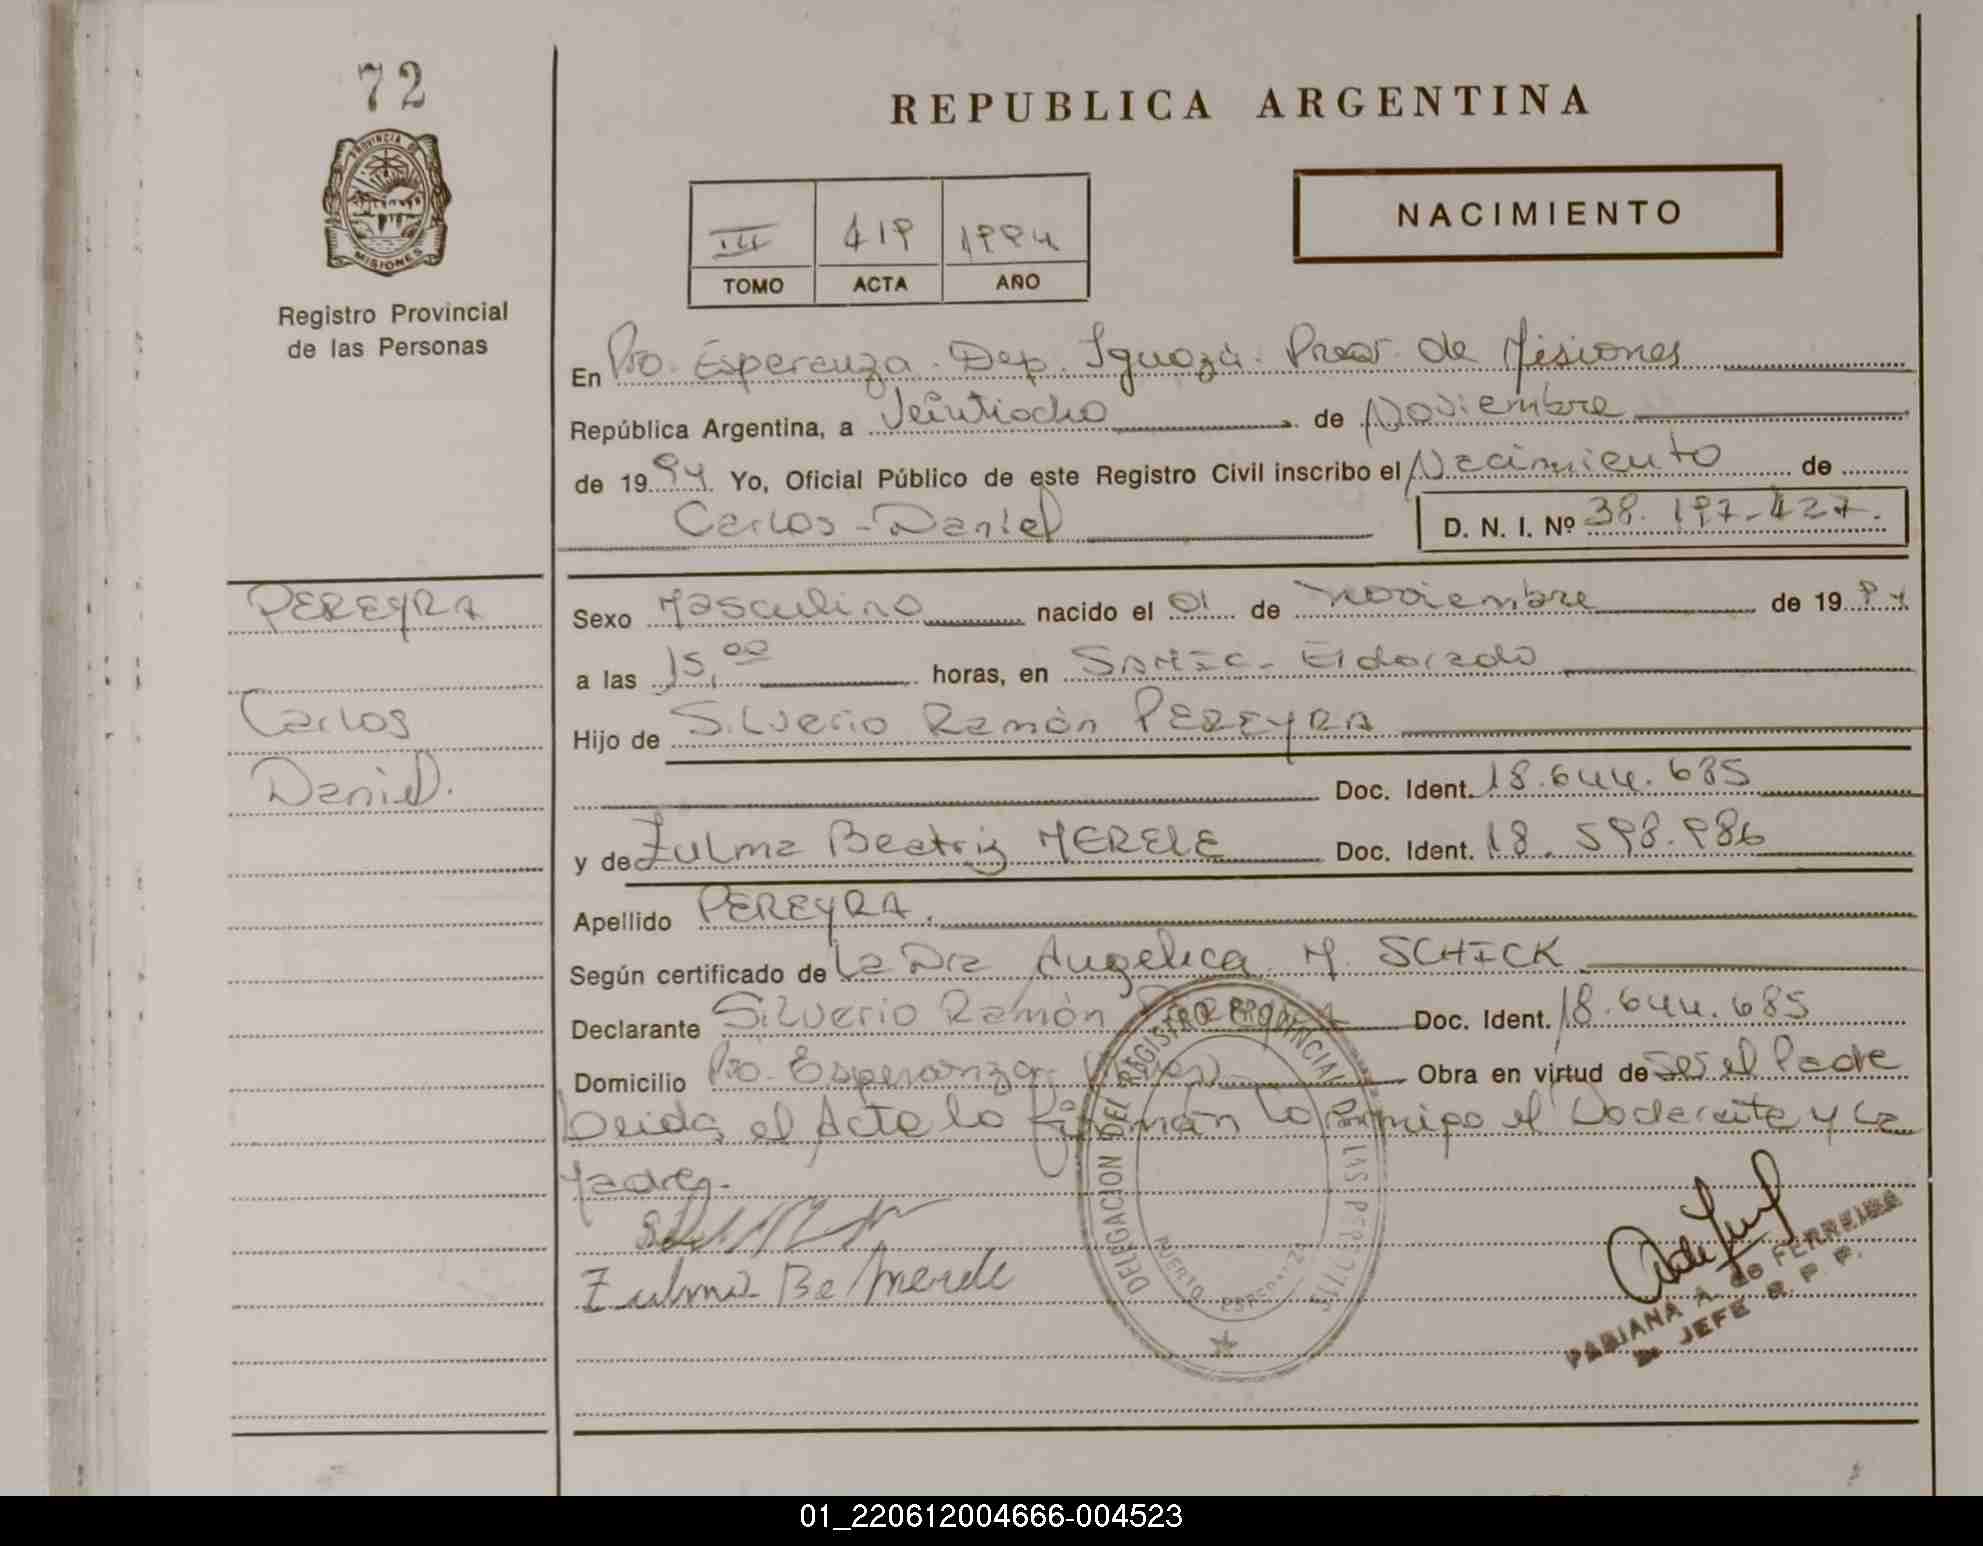 72
REPUBLICA ARGENTINA
PROVINCIA DE
MISIONES
Registro Provincial
de las Personas
III 419 1994
TOMO ACTA AÑO
NACIMIENTO
En Pto. Esperanza. Dep. Iguazú. Prov. de Misiones
República Argentina, a Veintiocho de Noviembre
de 1994 Yo, Oficial Público de este Registro Civil inscribo el Nacimiento de
Carlos - Daniel
D. N. I. Nº 38.197.427.
PEREYRA
Carlos
Daniel.
Sexo Masculino nacido el 01 de Noviembre de 1994
a las 15,00 horas, en SAMIC - Eldorado
Hijo de Silverio Ramón PEREYRA
Doc. Ident. 18.644.685
y de Zulma Beatriz MERELE Doc. Ident. 18.598.986
Apellido PEREYRA.
Según certificado de La Dra Angelica M. SCHICK
Declarante Silverio Ramón PEREYRA Doc. Ident. 18.644.685
Domicilio Pto. Esperanza Obra en virtud de ser el Padre
Leida el Acta la firman conmigo el y la
Madre.
Zulma Be Merele
DELEGACION DEL REGISTRO PROVINCIAL DE LAS PERSONAS
PUERTO ESPERANZA
FABIANA A. de FERREIRA
JEFE R. P. P.
01_220612004666-004523